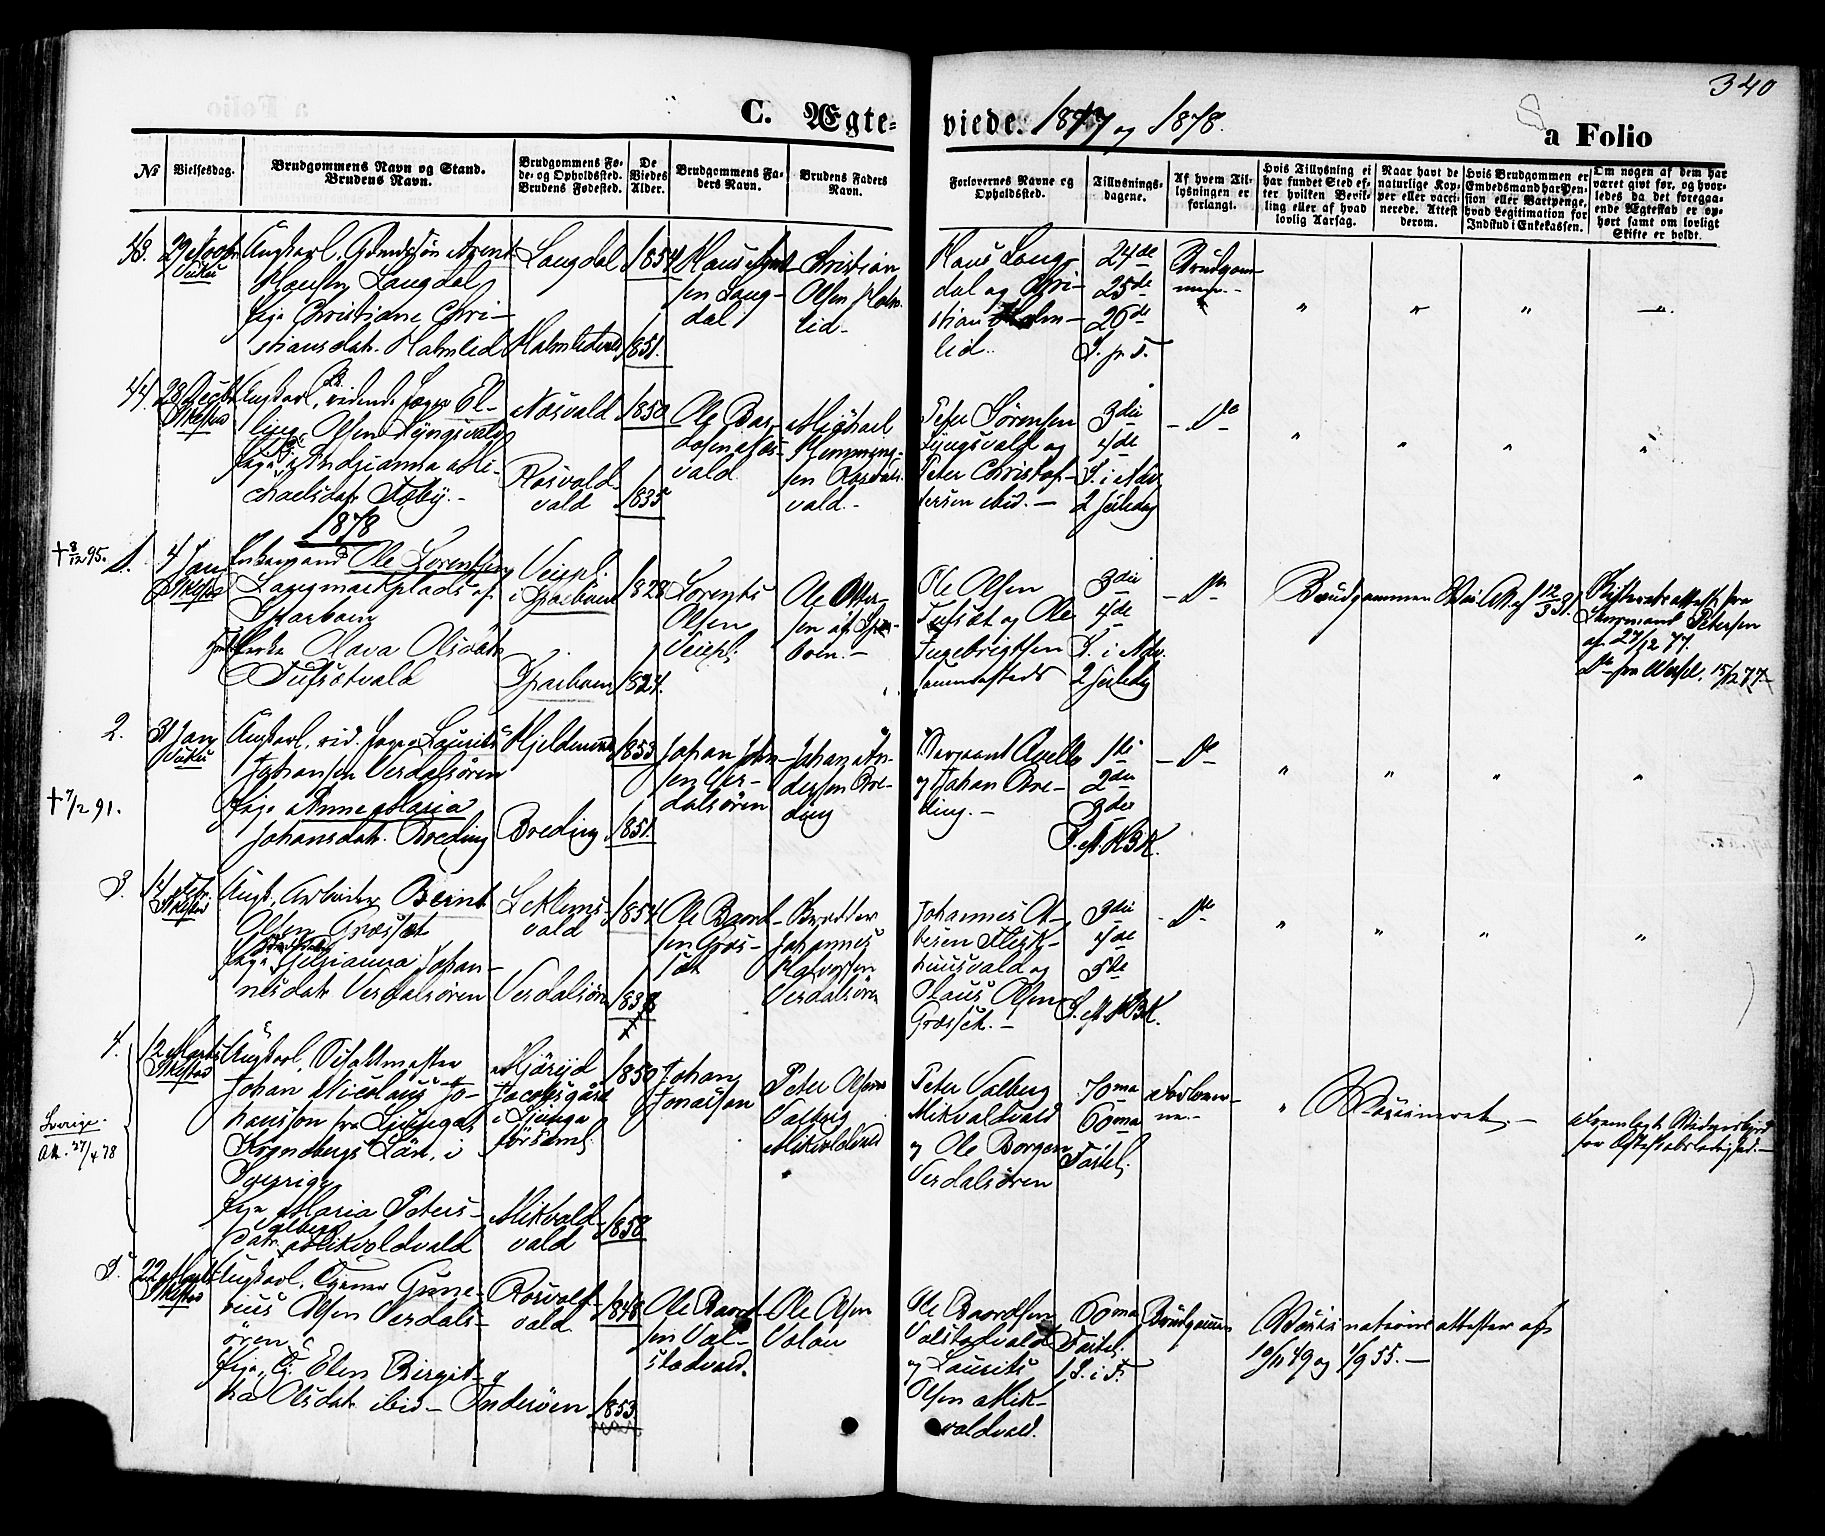 340
C. Ægte- viede. 1877 og 1878. a Folio
№
Vielsesdag.
Brudgommens Navn og Stand.
Brudens Navn.
Brudgommens Fø-
de- og Opholdssted.
Brudens Fødested.
De
Viedes
Alder.
Brudgommens Fa-
ders Navn.
Brudens Faders
Navn.
Forlovernes Navne og
Opholdssted.
Tillysnings-
dagene.
Af hvem Til-
lysningen er
forlangt.
Hvis Tillysning ei
har fundet Sted ef-
ter hvilken Bevil-
ling eller af hvad
lovlig Aarsag.
Naar havt de
naturlige Kop-
per eller vacci-
nerede. Attest
derom.
Hvis Brudgommen er
Embedsmand har Pen-
sion eller Vartpenge,
hvad Legitimation for
Indskud i Enkekassen.
Om nogen af dem har
været gift før, og hvor-
ledes da det foregaa-
ende Ægteskab er op-
hørt samt om lovligt
Skifte er holdt.
43.
29 Novbr
Vuku
Ungkarl, Gaardsøn Arent
Hansen Langdal
Pige Christiane Chri-
stiansdatr. Halmlid
Langdal
Halmlid
1854
1851.
Hans Arent-
sen Lang-
dal
Christian
Olsen Halm-
lid
Hans Lang-
dal og Chri-
stian Halm-
lid.
24de
25de
26de
S. p. T.
Brudgom-
men
44.
28 Decbr
Stiklestad
Ungkarl, ridende Jæger El-
ling Olsen Lyngsvald
Pige Andrianna Mi-
chaelsdatr
Næsvald
Rosvold-
vald
1850
1835
Ole Baar-
dsen Næs-
vald
Michael
Hemming-
sen Rosvold-
vald.
Peter Sørensen
Lyngsvald og
Peter Christof-
fersen ibid.
3die
4de
S. i Adv.
2 Juledag
Do
1878
† 8/12 95.
1.
4 Jan
Enkemand Ole Lorentsen
Langmarkplads af
Sparboen
Enke Olava Olsdatr
Tufsetvald
Veiepl.
i Sparboen
Sparboen
1828
1824.
Lorents
Olsen
Veiepl.
Ole Olsen
Tufset og Ole
Ingebrigtsen
sammesteds
3die
4de
S. i Adv.
2 Juledag
Do
Brudgommen
Skifteretsattest fra
Lensmand Petersen
af 27/12 77.
Do fra Wessel, 15/12 77.
2.
31 Jan
Vuku
Ungkarl, rid. Jæger Laurits
Johansen Verdalsøren
Pige Anne Maria
Johansdatr. Breding
† 7/2 91.
Hjeldmoe
Breding
1853
1851
Johan John-
sen Ver-
dalsøren
Johan An-
dersen Bre-
ding
Sergeant Auelle
og Johan Bre-
ding.
1ste
2den
3die
S. e. H.3.K.
Do
3.
14 Feb.
Stiklestad
Ungk., Arbeider Bernt
Olsen Græsset
Pige Gjertianna Johan-
nesdatr Verdalsøren
Leklems-
vald
Verdalsøren
1854
1838
Ole Baard-
sen Græs-
set
Johannes
Halvorsen
Verdalsøren
3die
4de
5de
S. e. H.3.K.
Do
4.
12 Marts
Stiklestad
Ungkarl,
Johan Nicolaus Jo-
hansson fra Ljunga,
Kronobergs Län, i
Sverige
Pige Maria Peters-
datr Valberg Mikvoldvald
Sverige
Att. 27/4 78
Jacobsgård
i Ljunga
församl.
Mikvold-
vald
1850
1858
Johan
Jonasson
Peter Olsen
Valberg
Mikvoldvald
Peter Valberg
Mikvoldvald
og Ole Borgen
Verdalsøren
70ma
60ma
Fastel.
Forlover-
ne
Vaccineret
Fremlagt Bevis
for Ægteskabsledighed.
5.
22 Marts
Stiklestad
Ungkarl, Tjener Gune-
rius Olsen Verdals-
øren
Pige, Tj. Elen Birgit-
ha Olsdatr ibid
Rosvold-
vald
Inderøen
1848
1853
Ole Baard-
sen Val-
stadvald.
Ole Olsen
Valan
Ole Baardsen
Valstadvald
og Laurits
Olsen Mik-
voldvald.
60ma
Fastel.
1 S. i F.
Brudgommen
Vaccinationsattester af
10/11 49 og 1/9 55.